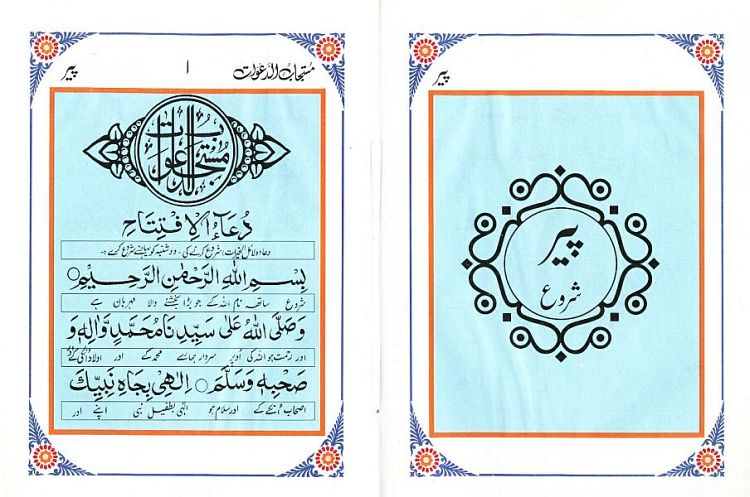 پیر
پیر
شروع
مستجاب الدعوات ۱ پیر
مستجاب الدعوات
دُعَآءُ الْاِفْتِتَاحِ
دعاء دلائل الخیرات شروع کرنے کی - دوشنبہ کو یہاں سے شروع کرے :-
بِسْمِ اللّٰهِ الرَّحْمٰنِ الرَّحِيْمِ ○
شروع ساتھ نام اللہ کے جو بڑا بخشنے والا مہربان ہے
وَصَلَّى اللّٰهُ عَلٰى سَيِّدِنَا مُحَمَّدٍ وَّاٰلِهٖ وَ
اور رحمت ہو اللہ کی اوپر سردار ہمارے محمد کے اور اولاد انکی کے اور
صَحْبِهٖ وَسَلَّمَ ○ اِلٰهِيْ بِجَاهِ نَبِيِّكَ
اصحاب انکے کے اور سلام ہو الٰہی بطفیل نبی اپنے اور